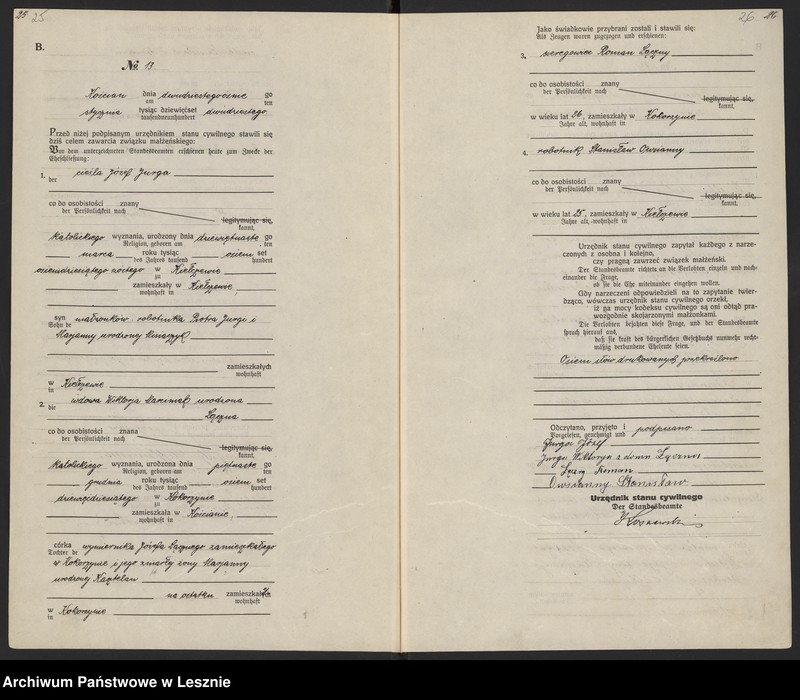 25 25
B.
No. 13
Kościan dnia dwudziestego ósme go
am ten
stycznia tysiąc dziewięćset dwudziestego
tausendneunhundert
Przed niżej podpisanym urzędnikiem stanu cywilnego stawili się
dziś celem zawarcia związku małżeńskiego:
Vor dem unterzeichneten Standesbeamten erschienen heute zum Zwecke der
Eheschließung:
1. cieśla Józef Jurga
der
co do osobistości znany
der Persönlichkeit nach
legitymując się,
kannt,
Katolickiego wyznania, urodzony dnia dziewiętnaste go
Religion, geboren am ten
marca roku tysiąc osiem set
des Jahres tausend hundert
osiemdziesiątego szóstego w Kiełczewie
zu
zamieszkały w Kiełczewie,
wohnhaft in
syn małżonków robotnika Piotra Jurgi i
Sohn de
Marjanny urodzonej
zamieszkałych
wohnhaft
w Kiełczewie
in
2. wdowa Wiktorja Marciniak urodzona
die
Łączna
co do osobistości znana
der Persönlichkeit nach
legitymując się,
kannt,
Katolickiego wyznania, urodzona dnia piętnaste go
Religion, geboren am ten
grudnia roku tysiąc osiem set
des Jahres tausend hundert
dziewięćdziesiątego w Kokorzynie
zu
zamieszkała w Kościanie,
wohnhaft in
córka wymiernika Józefa Łącznego zamieszkałego
Tochter de
w Kokorzynie i jego zmarłej żony Marjanny
urodzonej Kasztelan
na ostatku zamieszkałej
wohnhaft
w Kokorzynie
in
26 26
Jako świadkowie przybrani zostali i stawili się:
Als Zeugen waren zugezogen und erschienen:
3. szeregowiec Roman Łączny
co do osobistości znany
der Persönlichkeit nach
legitymując się,
kannt,
w wieku lat 26, zamieszkały w Kokorzynie
Jahre alt, wohnhaft in
4. robotnik Stanisław Owsianny
co do osobistości znany
der Persönlichkeit nach
legitymując się,
kannt,
w wieku lat 25, zamieszkały w Kiełczewie
Jahre alt, wohnhaft in
Urzędnik stanu cywilnego zapytał każdego z narze-
czonych z osobna i kolejno,
czy pragną zawrzeć związek małżeński.
Der Standesbeamte richtete an die Verlobten einzeln und nach-
einander die Frage,
ob sie die Ehe miteinander eingehen wollen.
Gdy narzeczeni odpowiedzieli na to zapytanie twier-
dząco, wówczas urzędnik stanu cywilnego orzekł,
iż na mocy kodeksu cywilnego są oni odtąd pra-
wozgodnie skojarzonymi małżonkami.
Die Verlobten bejahten diese Frage, und der Standesbeamte
sprach hierauf aus,
daß sie kraft des bürgerlichen Gesetzbuchs nunmehr recht-
mäßig verbundene Eheleute seien.
Osiem słów drukowanych przekreślono
Odczytano, przyjęto i podpisano
Vorgelesen, genehmigt und
Jurga Józef
Jurga Wiktorja z domu Łączna
Łączny Roman
Owsianny Stanisław
Urzędnik stanu cywilnego
Der Standesbeamte
Archiwum Państwowe w Lesznie